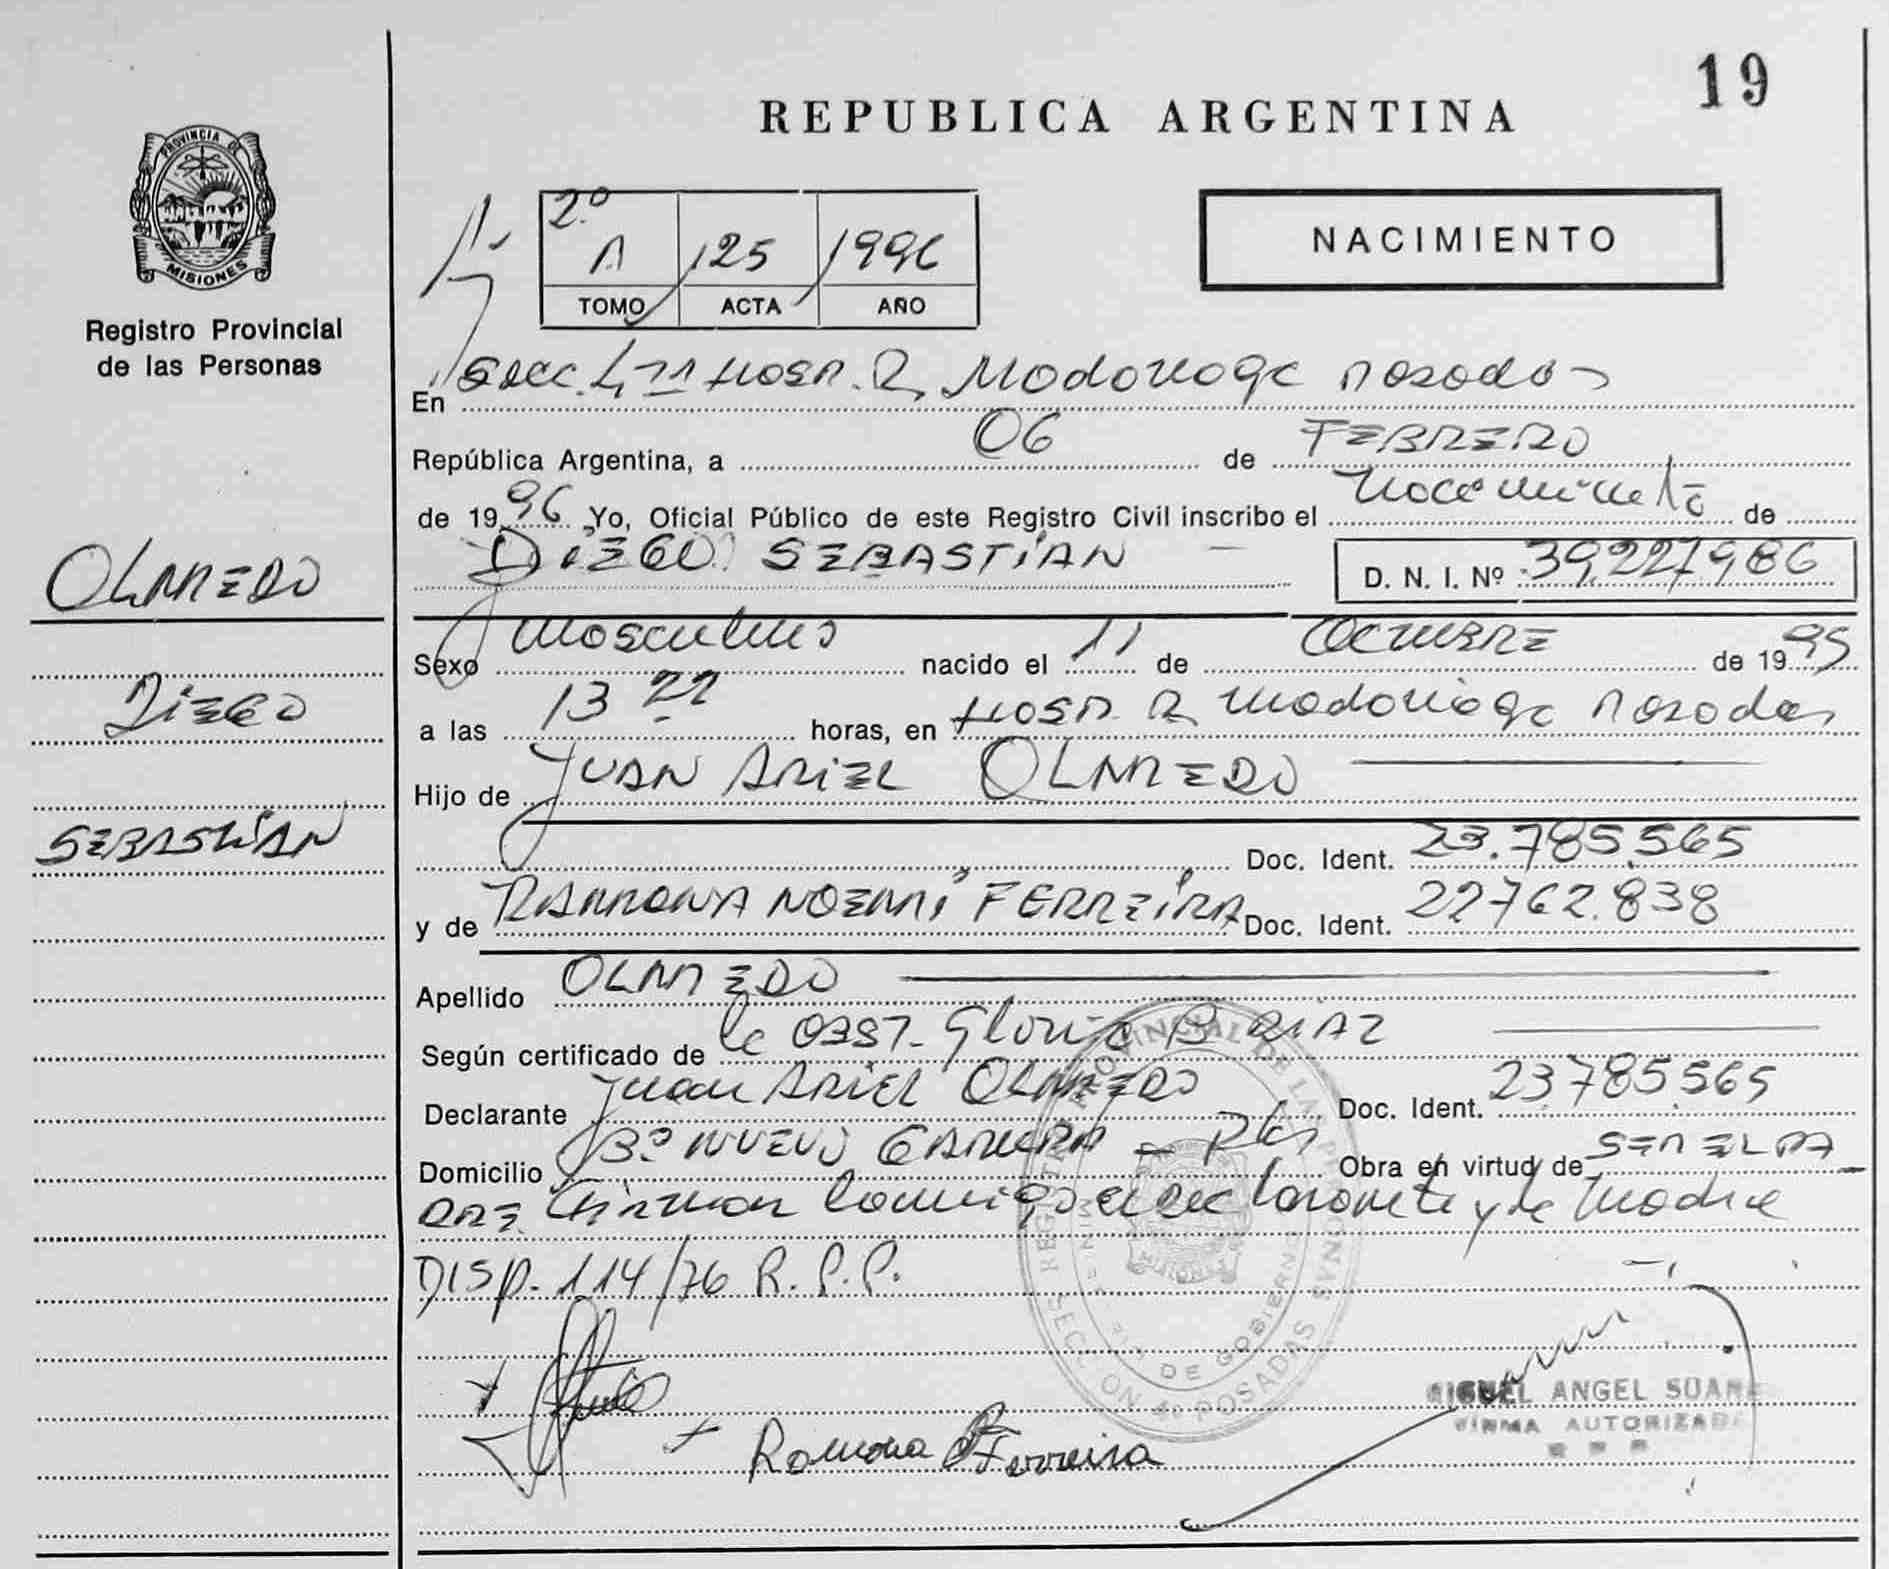 19
REPUBLICA ARGENTINA
PROVINCIA DE
MISIONES
Registro Provincial
de las Personas
2.º
A 125 1996
TOMO ACTA AÑO
NACIMIENTO
En Secc. 4ta Hosp. R. Madariaga Posadas
República Argentina, a 06 de FEBRERO
de 1996 Yo, Oficial Público de este Registro Civil inscribo el nacimiento de
DIEGO SEBASTIÁN D. N. I. Nº 39.227.986
OLMEDO
DIEGO
SEBASTIÁN
Sexo Masculino nacido el 11 de OCTUBRE de 1995
a las 13 22 horas, en Hosp. R. Madariaga Posadas
Hijo de JUAN ARIEL OLMEDO
Doc. Ident. 23.785.565
y de RAMONA NOEMÍ FERREIRA Doc. Ident. 22762.838
Apellido OLMEDO
Según certificado de la OBST. Gloria B DIAZ
Declarante Juan ARIEL OLMEDO Doc. Ident. 23785.565
Domicilio Bº NUEVO Obra en virtud de SER EL PA
DRE Firman conmigo el declarante y la Madre
DISP. 114/76 R.P.P.
REGISTRO PROVINCIAL DE LAS PERSONAS
DE GOBIERNO
SECCION 4º POSADAS
Ramona Ferreira
MIGUEL ANGEL SUARE
FIRMA AUTORIZADA